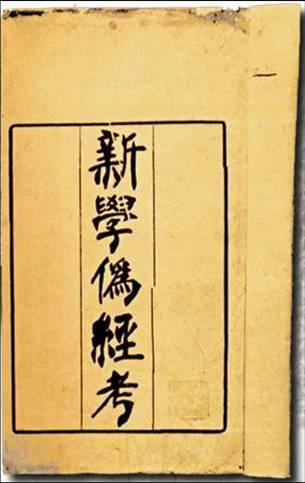 新學僞經考